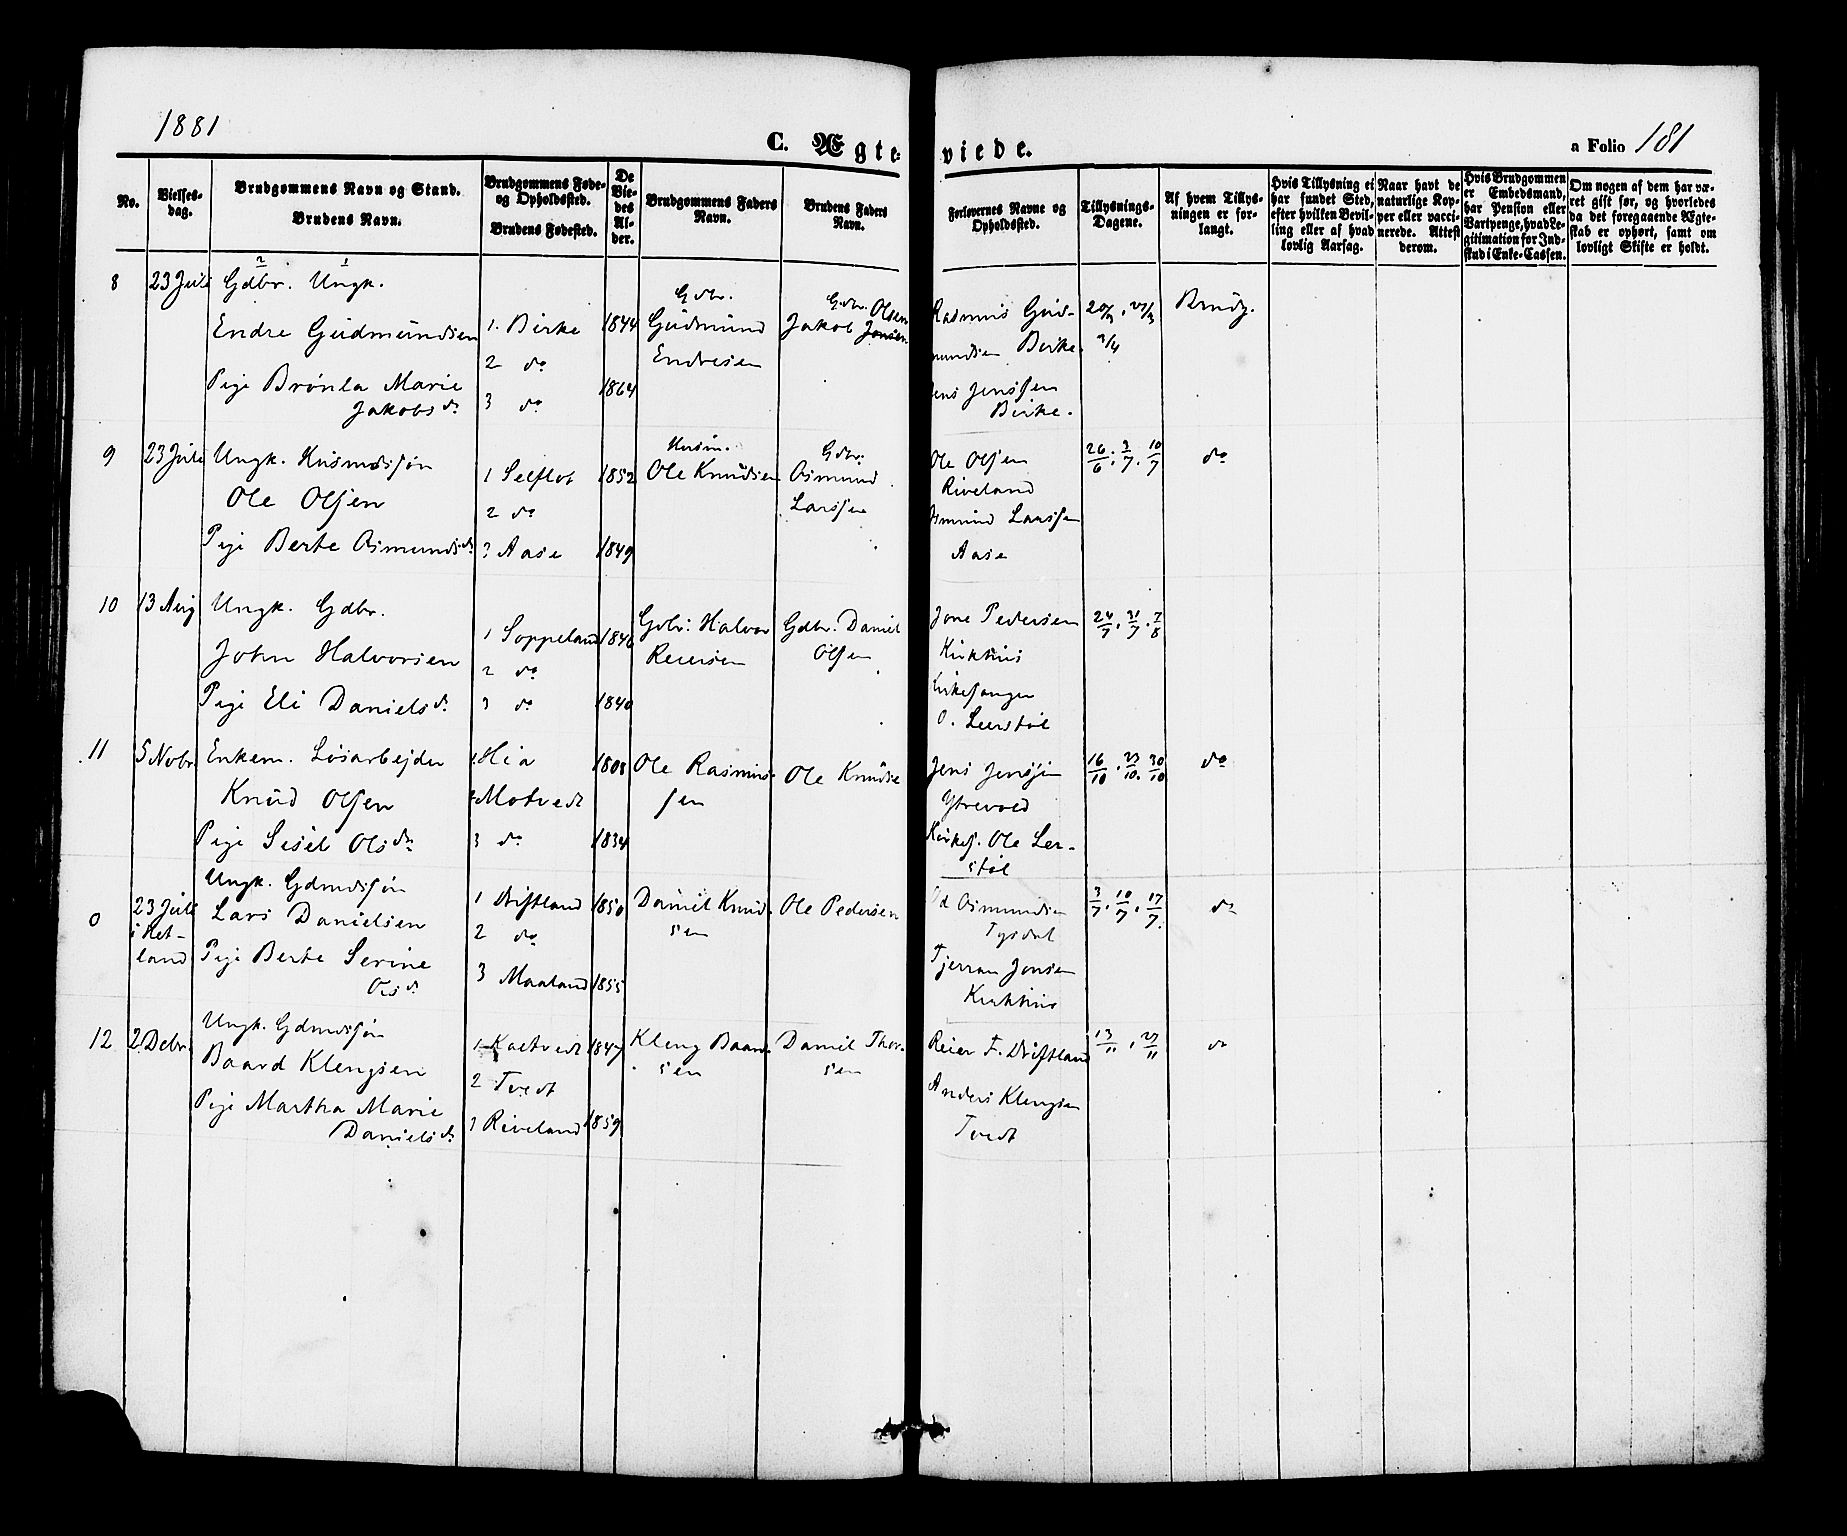 1881
C. Ægte-
viede.
a Folio 181
No.
Vielses-
dag.
Brudgommens Navn og Stand.
Brudens Navn.
Brudgommens Føde-
og Opholdssted.
Brudens Fødested.
De
Vie-
des
Al-
der.
Brudgommens Faders
Navn.
Brudens Faders
Navn.
Forlovernes Navne og
Opholdssted.
Tillysnings-
Dagene.
Af hvem Tillys-
ningen er for-
langt.
Hvis Tillysning ei
har fundet Sted,
efter hvilken Bevil-
ling eller af hvad
lovlig Aarsag.
Naar havt de
naturlige Kop-
per eller vacci-
nerede. Attest
derom.
Hvis Brudgommen
er Embedsmand,
har Pension eller
Vartpenge, hvad Le-
gitimation for Ind-
skud i Enke-Cassen.
Om nogen af dem har væ-
ret gift før, og hvorledes
da det foregaaende Ægte-
skab er ophørt, samt om
lovligt Skifte er holdt.
8
23 Juli
2 1
Gdbr. Ungk.
Endre Gudmundsen
Pige Brønla Marie
Jakobsdr
1. Birke
2 do
3 do
1844
1864
Gdbr.
Gudmund
Endresen
Gdbr. Olsen
Jakob Jonsen
Rasmus Gud-
mundsen Birke
Jens Jenssen
Birke.
20/3, 27/3
3/4
Brudg.
9
23 Juli
Ungk. Husmdssøn
Ole Olsen
Pige Berte Osmundsdr
1 Selflot
2 do
3 Aase
1852
1849
Husm.
Ole Knudsen
Gdbr.
Osmund
Larssen
Ole Olsen
Riveland
Osmund Larssen
Aase
26/6, 3/7, 10/7
do
10
13 Aug
Ungk. Gdbr.
John Halvorsen
Pige Eli Danielsdr
1 Soppeland
2 do
3 do
1846
1840
Gdbr: Halvor
Reiersen
Gdbr. Daniel
Olsen
Jone Pedersen
Kirkhus
Kirkesanger
O. Leerstøl
24/7, 31/7, 7/8
11
5 Nobr.
Enkem. Løsarbejder
Knud Olsen
Pige Sisil Olsdr
1. Hia
2 Motvedt
3 do
1808
1834
Ole Rasmus-
sen
Ole Knudse
Jens Jenssen
Ytrevold
Kirkes. Ole Ler-
støl
16/10, 23/10, 30/10
do
0
23 Juli
i Ret-
land
Ungk. Gdmdssøn
Lars Danielsen
Pige Berte Serine
Olsdr
1 Driftland
2 do
3 Maaland
1850
1855
Daniel Knud-
sen
Ole Pedersen
Od Osmundsen
Tysdal
Tjerran Jonsen
Kirkhus
3/7, 10/7, 17/7
do
12
2 Debr.
Ungk. Gdmdssøn
Baard Klengsen
Pige Martha Marie
Danielsdr
1 Kaltvedt
2 Tvedt
3 Riveland
1847
1859
Kleng Baard-
sen
Daniel Thor-
sen
Reier T. Driftland
Anders Klengsen
Tvedt
13/11, 27/11
do